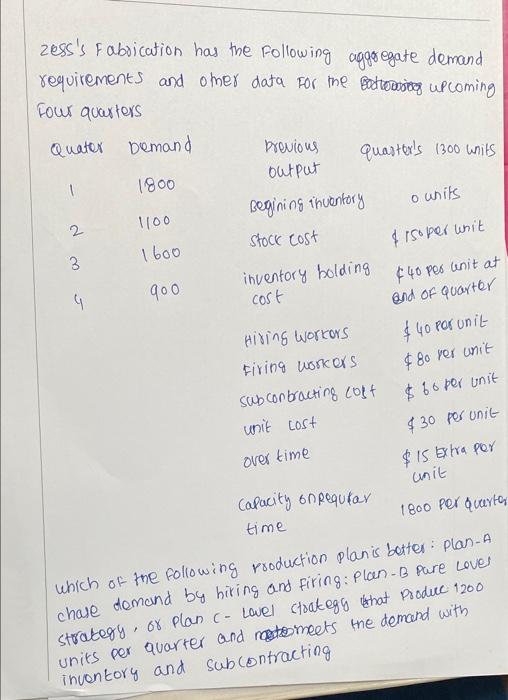 zess's Fabrication has the Following aggregate demand
requirements and other data For the upcoming
Four quarters
Quater Demand
1 1800
2 1100
3 1600
4 900
Previous output Quarter's 1300 units
Begining inventory 0 units
Stock cost $150 per unit
inventory holding cost $40 per unit at end of quarter
Hiring Workers $40 per unit
Firing workers $80 per unit
Subcontracting cost $60 per unit
unit cost $30 per unit
over time $15 Extra per unit
Capacity on regular time 1800 per quarter
which of the following production plan is better: plan-A
chase demand by hiring and firing: Plan-B Pure Level
strategy, or plan C- Level strategy that Produce 1200
units per quarter and meets the demand with
inventory and subcontracting